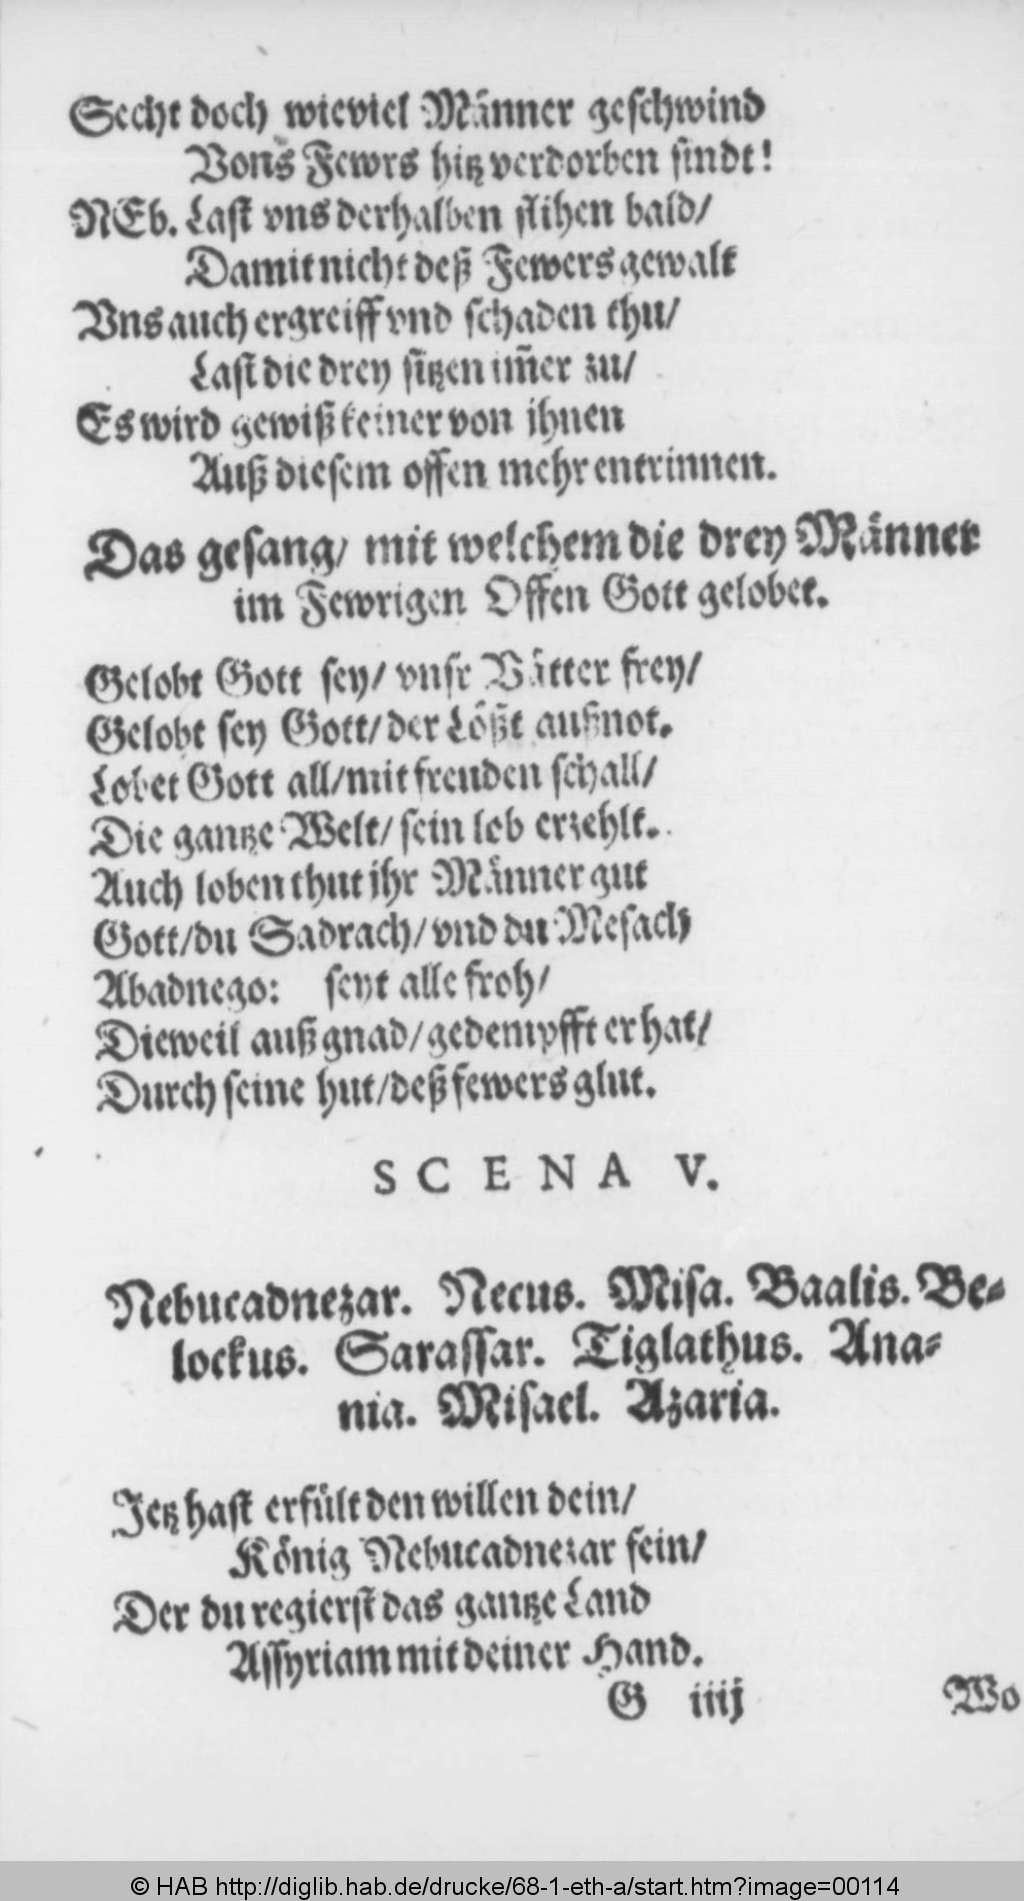 Secht doch wieviel Männer geschwind
Vons Fewrs hitz verdorben sindt!
NEb. Last vns derhalben flihen bald/
Damit nicht deß Fewers gewalt
Vns auch ergreiff vnd schaden thu/
Last die drey sitzen im̃er zu/
Es wird gewiß keiner von jhnen
Auß diesem offen mehr entrinnen.
Das gesang/ mit welchem die drey Männer
im Fewrigen Offen Gott gelobet.
Gelobt Gott sey/ vnsr Vätter frey/
Gelobt sey Gott/ der Lößt außnot.
Lobet Gott all/ mit freuden schall/
Die gantze Welt/ sein lob erzehlt.
Auch loben thut jhr Männer gut
Gott/ du Sadrach/ vnd du Mesach
Abadnego: seyt alle froh/
Dieweil auß gnad/ gedempfft er hat/
Durch seine hut/ deß fewers glut.
SCENA V.
Nebucadnezar. Necus. Misa. Baalis. Be-
lockus. Sarassar. Tiglathus. Ana-
nia. Misael. Azaria.
Jetz hast erfült den willen dein/
König Nebucadnezar fein/
Der du regierst das gantze Land
Assyriam mit deiner Hand.
G iiij Wo
© HAB http://diglib.hab.de/drucke/68-1-eth-a/start.htm?image=00114